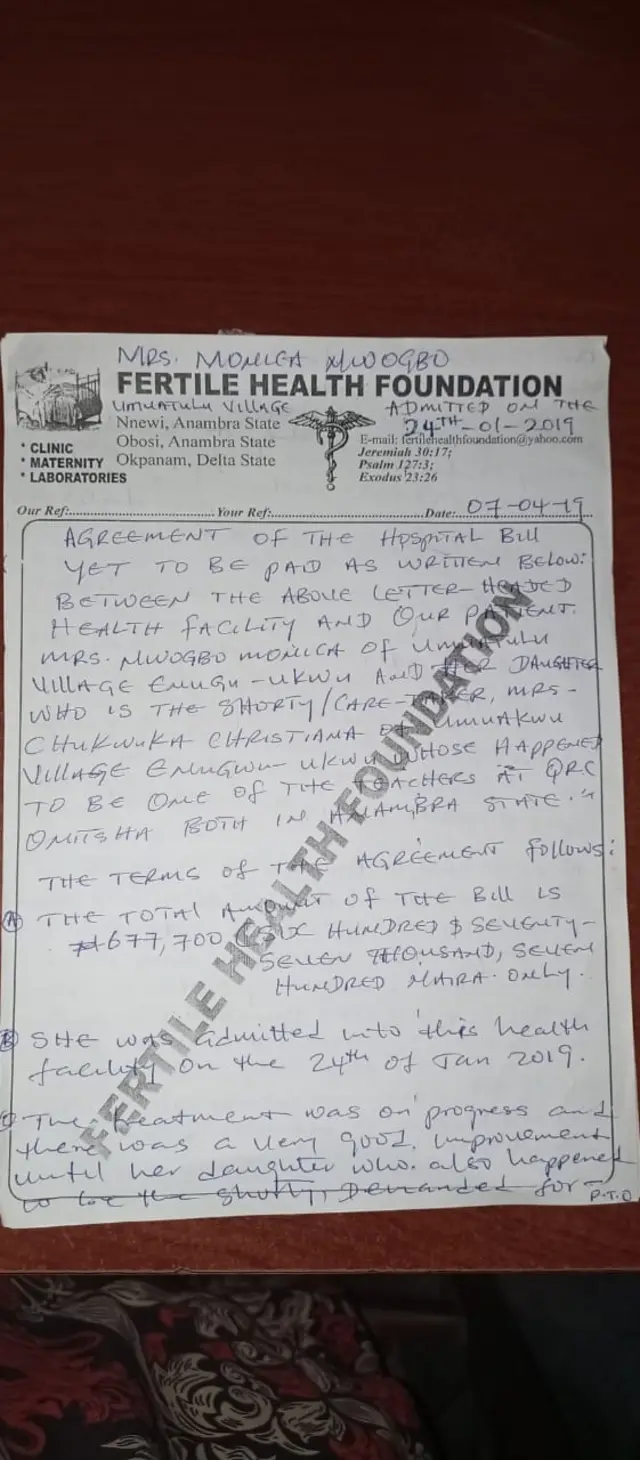 MRS. MONICA NWOGBO
FERTILE HEALTH FOUNDATION
UMUATULU VILLAGE
ADMITTED ON THE
24TH-01-2019
Nnewi, Anambra State
Obosi, Anambra State
Okpanam, Delta State
• CLINIC
• MATERNITY
• LABORATORIES
E-mail: fertilehealthfoundation@yahoo.com
Jeremiah 30:17;
Psalm 127:3;
Exodus 23:26
Our Ref:.....Your Ref:.....Date: 07-04-19
AGREEMENT OF THE HOSPITAL BILL
YET TO BE PAID AS WRITTEN BELOW:
BETWEEN THE ABOVE LETTER-HEADED
HEALTH FACILITY AND OUR PATIENT.
MRS. NWOGBO MONICA OF UMUATULU
VILLAGE ENUGU-UKWU AND HER DAUGHTER
WHO IS THE SHORTY/CARE-TAKER, MRS-
CHUKWUKA CHRISTIANA OF UMUAKWU
VILLAGE ENUGWU-UKWU WHOSE HAPPENED
TO BE ONE OF THE TEACHERS AT QRC
ONITSHA BOTH IN ANAMBRA STATE."
THE TERMS OF THE AGREEMENT FOLLOWS:
(A) THE TOTAL AMOUNT OF THE BILL IS
₦677,700 (SIX HUNDRED $ SEVENTY-
SEVEN THOUSAND, SEVEN
HUNDRED NAIRA. ONLY.
(B) SHE was admitted into this health
facility on the 24th of Jan 2019.
The treatment was on progress and
there was a very good improvement
until her daughter who also happened
to be the shorty, Demanded for
P.T.O
FERTILE HEALTH FOUNDATION